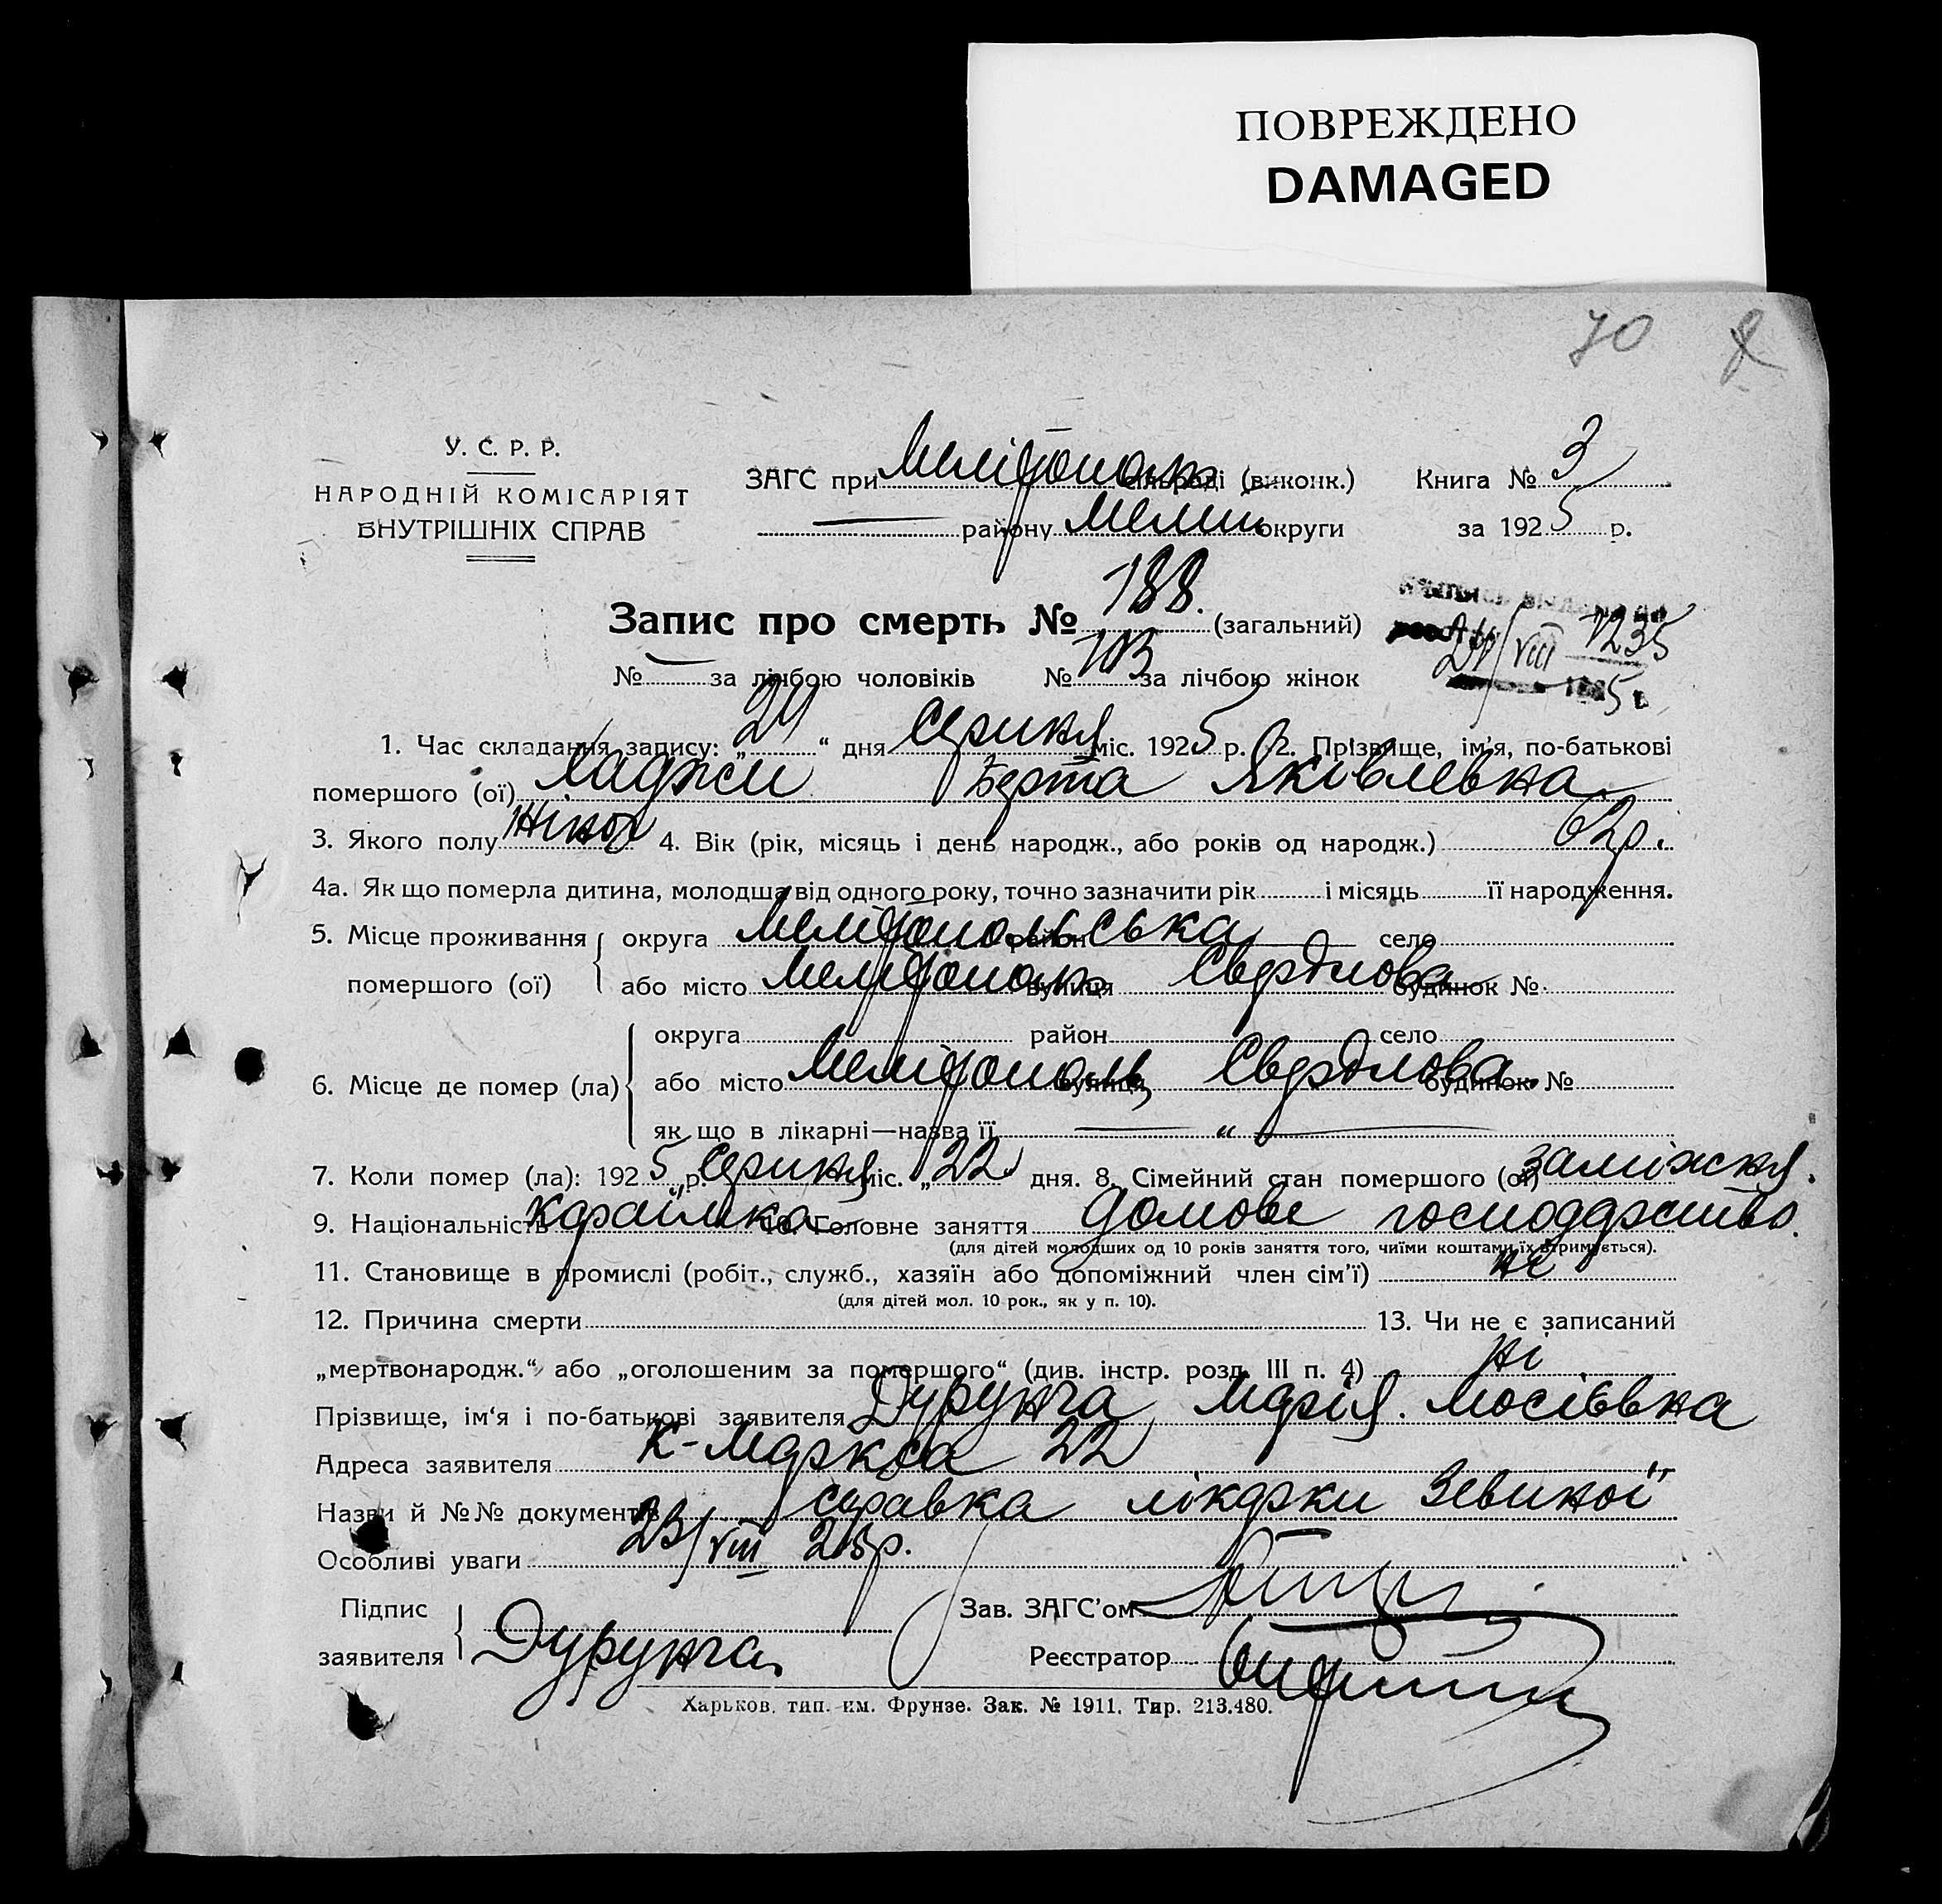 ПОВРЕЖДЕНО
DAMAGED
70
У. С. Р. Р.
НАРОДНІЙ КОМІСАРІЯТ
ВНУТРІШНІХ СПРАВ
ЗАГС при Меліт сільраді (виконк.) Книга № 3
району Мелит округи за 1925 р.
Запис про смерть № 188. (загальний)
№ — за лічбою чоловіків № 103 за лічбою жінок
24/VIII 1235
1. Час складання запису: „24“ дня Серпня міс. 1925 р. 2. Прізвище, ім'я, по-батькові
помершого (ої) Хаджи Берта Яківлевна
3. Якого полу жіноч 4. Вік (рік, місяць і день народж., або років од народж.) 62р.
4а. Як що померла дитина, молодша від одного року, точно зазначити рік і місяць її народження.
5. Місце проживання округа Мелітопольська район село
помершого (ої) або місто Мелітополь вулиця Свердлова будинок №
округа район село
6. Місце де помер (ла) або місто Мелітополь вулиця Свердлова будинок №
як що в лікарні—назва її — „ —
7. Коли помер (ла): 1925 р. Серпня міс. „22“ дня. 8. Сімейний стан помершого (ої) заміжня.
9. Національність Караїмка 10. Головне заняття домове господарство.
(для дітей молодших од 10 років заняття того, чиїми коштами їх втримується).
11. Становище в промислі (робіт., служб., хазяїн або допоміжний член сім'ї) не
(для дітей мол. 10 рок., як у п. 10).
12. Причина смерти 13. Чи не є записаний
„мертвонародж.“ або „оголошеним за помершого“ (див. інстр. розд. III п. 4) ні
Прізвище, ім'я і по-батькові заявителя Дурунча Марія Мосієвна
Адреса заявителя К-Маркса 22
Назви й №№ документів справка лікарки Зевиної
Особливі уваги 23/VIII 25р.
Підпис Зав. ЗАГС'ом
заявителя Дурунча Реєстратор
Харьков. тип. им. Фрунзе. Зак. № 1911. Тир. 213.480.